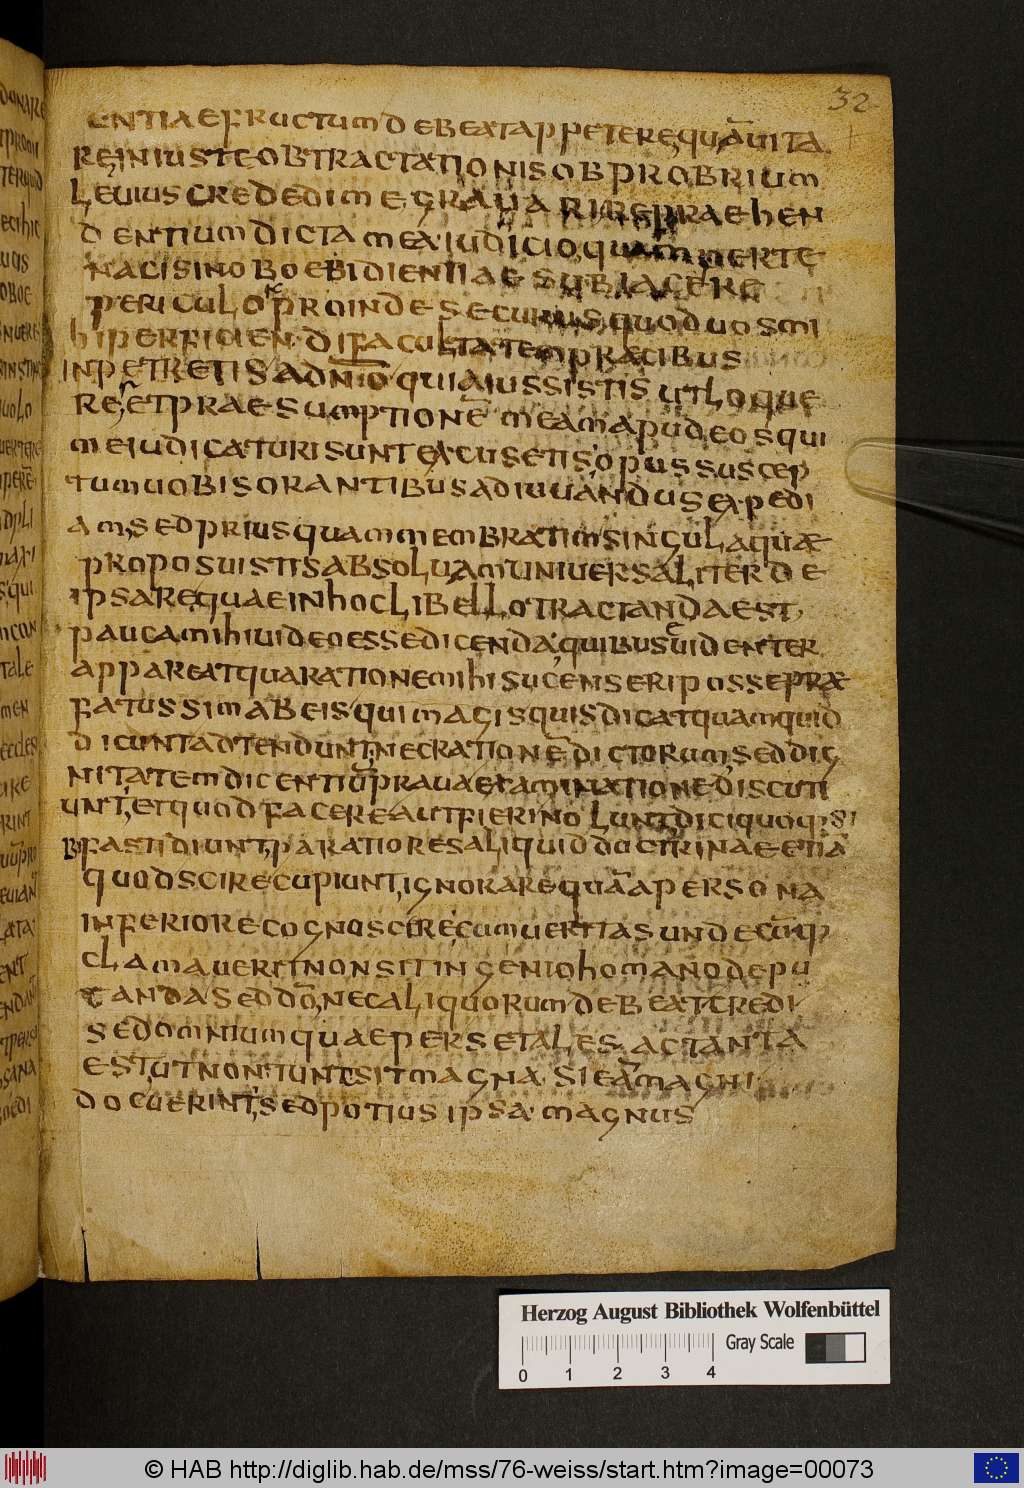 32
ENTIAE FRUCTUM DEBEAT APPETERE QUĀ UITA
REINIUSTE OBTRACTATIONIS OBPROBRIUM
LEUIUS CREDEDI ME GRAUARI REPRAEHEN
DENTIUM DICTA MEA IUDICIO QUAM PERTE
NACIS INOBOEBIDIENTIAE SUBIACERE
PERICULO PROINDE SECURUS QUOD UOS MI
HI PERFICIENDI FACULTATEM PRAECIBUS
INPETRETIS AD DNO QUIA IUSSISTIS UT LOQUE
RER ET PRAESUMPTIONĒ MEAM APUD EOS QUI
ME IUDICATURI SUNT EXCUSETIS OPUS SUSCEP
TUM UOBIS ORANTIBUS ADIUUANDUS EXPEDI
AM SED PRIUSQUAM MEMBRATIM SINGULA QUAE
PROPOSUISTIS ABSOLUAM UNIUERSALITER DE
IPSA RE QUAE IN HOC LIBELLO TRACTANDA EST
PAUCA MIHI UIDEO ESSE DICENDA QUIBUS EUIDENTER
APPAREAT QUA RATIONE MIHI SUCENSERI POSSE PRAE
FATUS SIM AB EIS QUI MAGIS QUIS DICAT QUAM QUID
DICUNT ADTENDUNT NEC RATIONĒ DICTORUM SED DIG
NITATEM DICENTIŪ PRAUA EXAMINATIONE DISCUTI
UNT ET QUOD FACERE AUT FIERI NOLUNT DICI QUOQ; SI
BI FASTIDIUNT PARATIORES ALIQUID DOCTRINAE ETIĀ
QUOD SCIRE CUPIUNT IGNORARE QUĀ A PERSONA
INFERIORE COGNOSCERE CUM UERITAS UNDECŪQ;
CLAMAUERIT NON SIT INGENIO HOMANO DEPU
TANDA SED DŌ NEC ALIQUORUM DEBEAT CREDI
SED OMNIUM QUAE PER SE TALES AC TANTA
EST UT NON TUNC SIT MAGNA SI EĀ MAGNI
DOCUERINT SED POTIUS IPSA MAGNUS
Herzog August Bibliothek Wolfenbüttel
Gray Scale
0 1 2 3 4
© HAB http://diglib.hab.de/mss/76-weiss/start.htm?image=00073